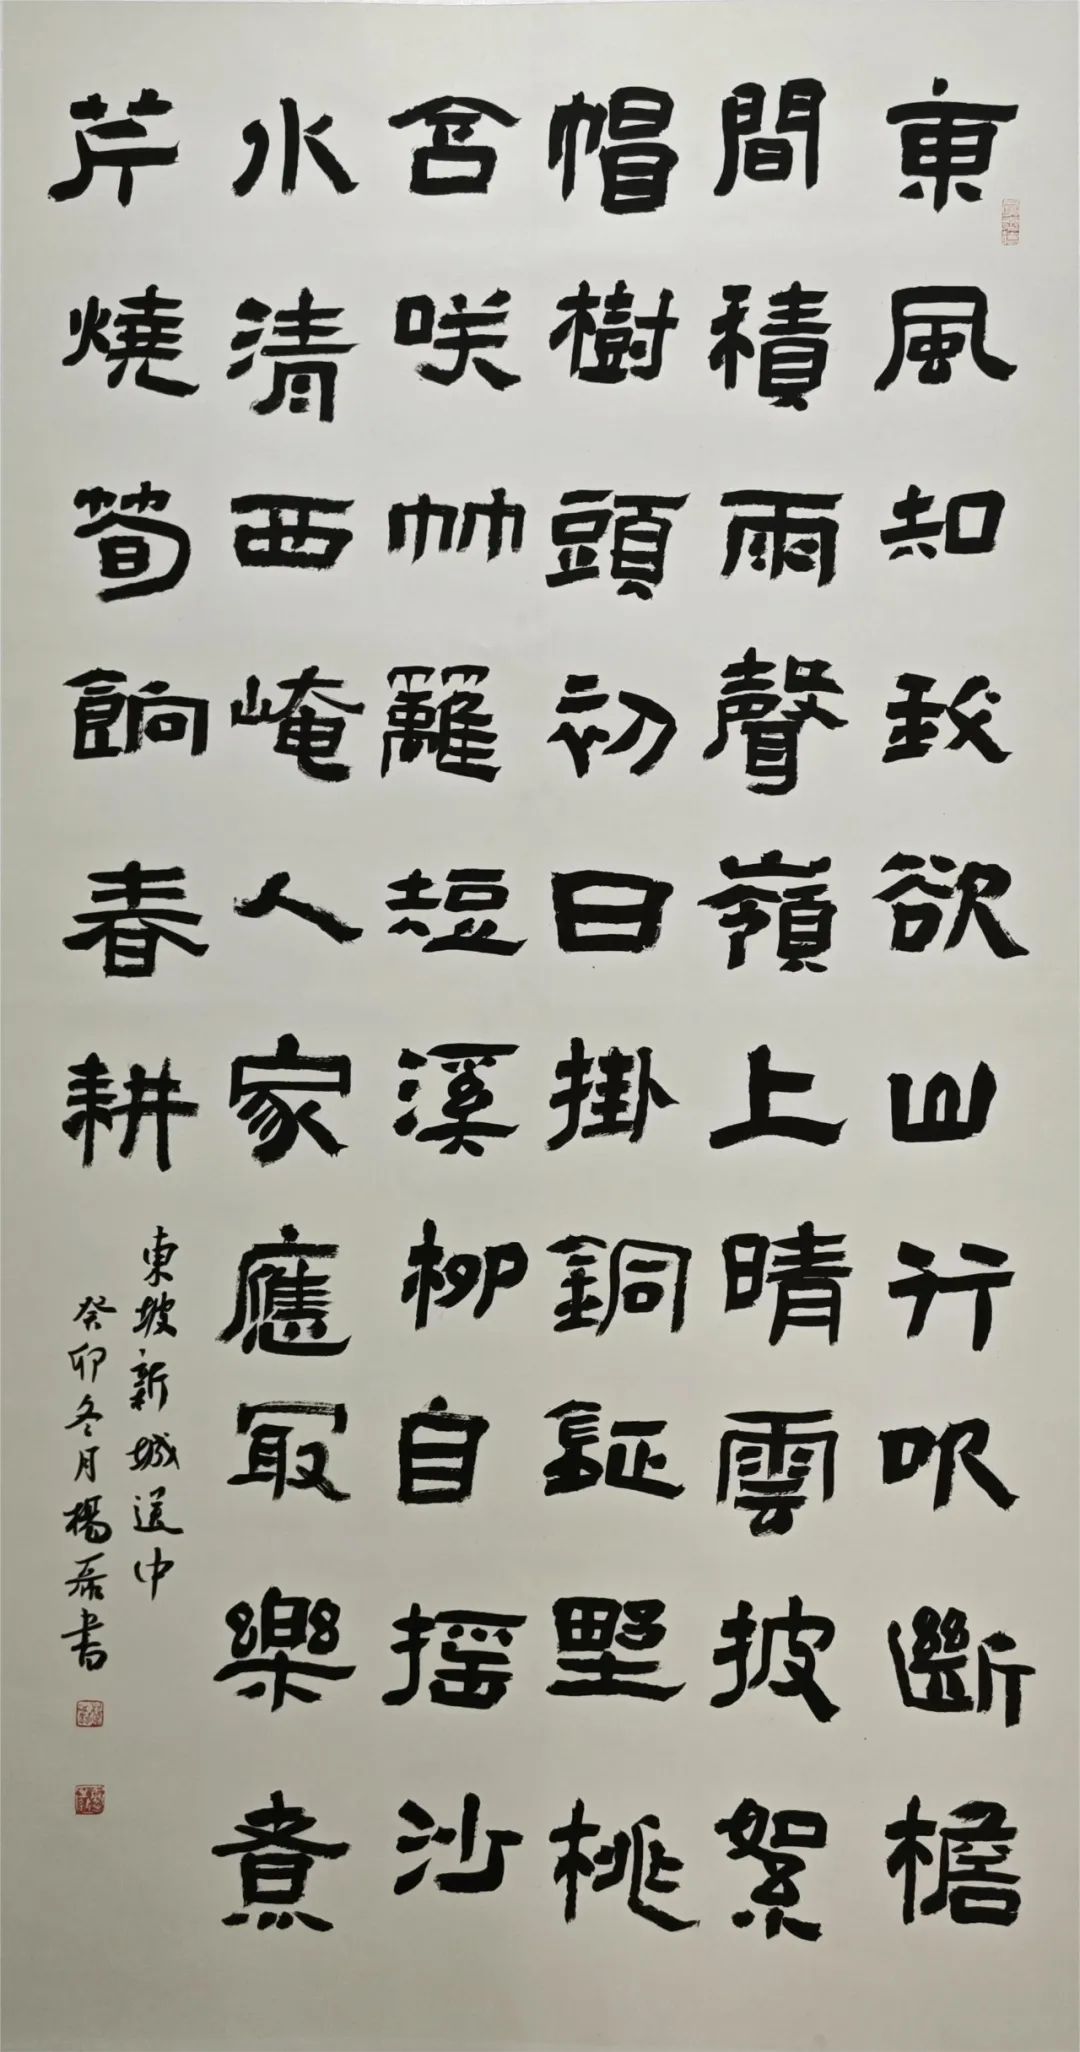 東風知我欲山行吹斷檐
間積雨聲嶺上晴雲披絮
帽樹頭初日掛銅鉦野桃
含咲竹籬短溪柳自搖沙
水清西崦人家應冣樂煮
芹燒筍餉春耕
東坡新城道中
癸卯冬月楊磊書